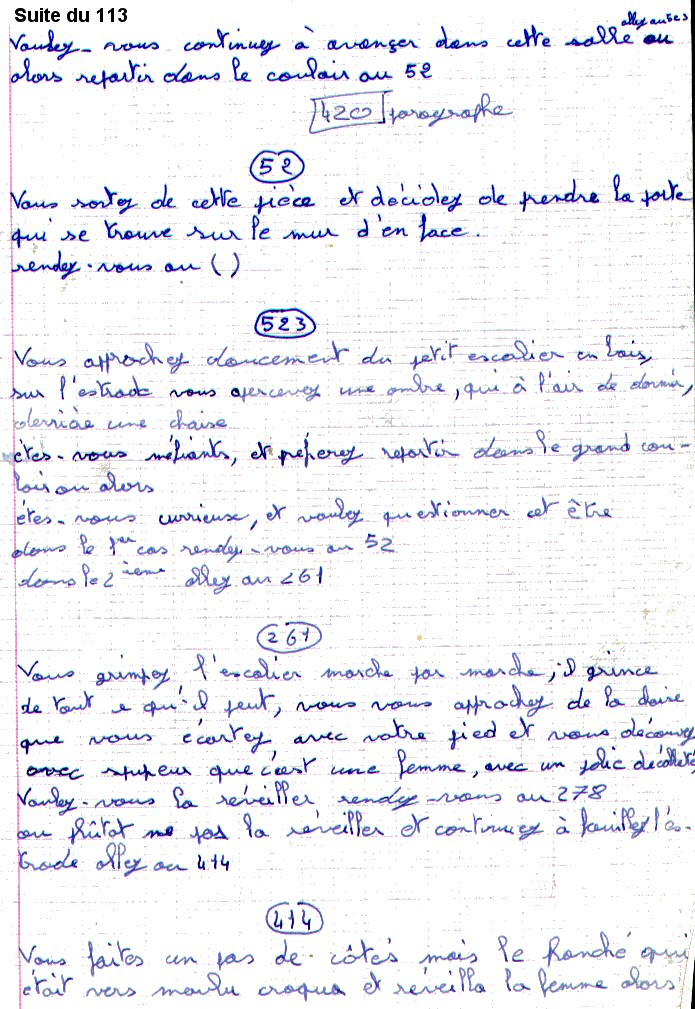 Suite du 113
allez au 523
Voulez-vous continuez à avançer dans cette salle ou
alors repartir dans le couloir au 52
420 paragraphe
52
Vous sortez de cette pièce et décidez de prendre la porte
qui se trouve sur le mur d'en face.
rendez-vous au ( )
523
Vous approchez doucement du petit escalier en bois,
sur l'estrade vous apercevez une ombre, qui à l'air de dormir,
derrière une chaise
êtes-vous méfiants, et préferez repartir dans le grand cou-
loir ou alors
êtes-vous currieuse, et voulez questionner cet être
dans le 1er cas rendez-vous au 52
dans le 2ième allez au 261
261
Vous grimpez l'escalier marche par marche, il grince
de tout ce qu'il peut, vous vous approchez de la
que vous écartez avec votre pied et vous découvrez
avec stupeur que c'est une femme, avec un jolie décolleté
Voulez-vous la réveiller rendez-vous au 278
ou plûtot ne pas la réveiller et continuez à fouillez l'es-
trade allez au 414
414
Vous faites un pas de côtés mais le planché qui
était vers moulu croqua et réveilla la femme alors